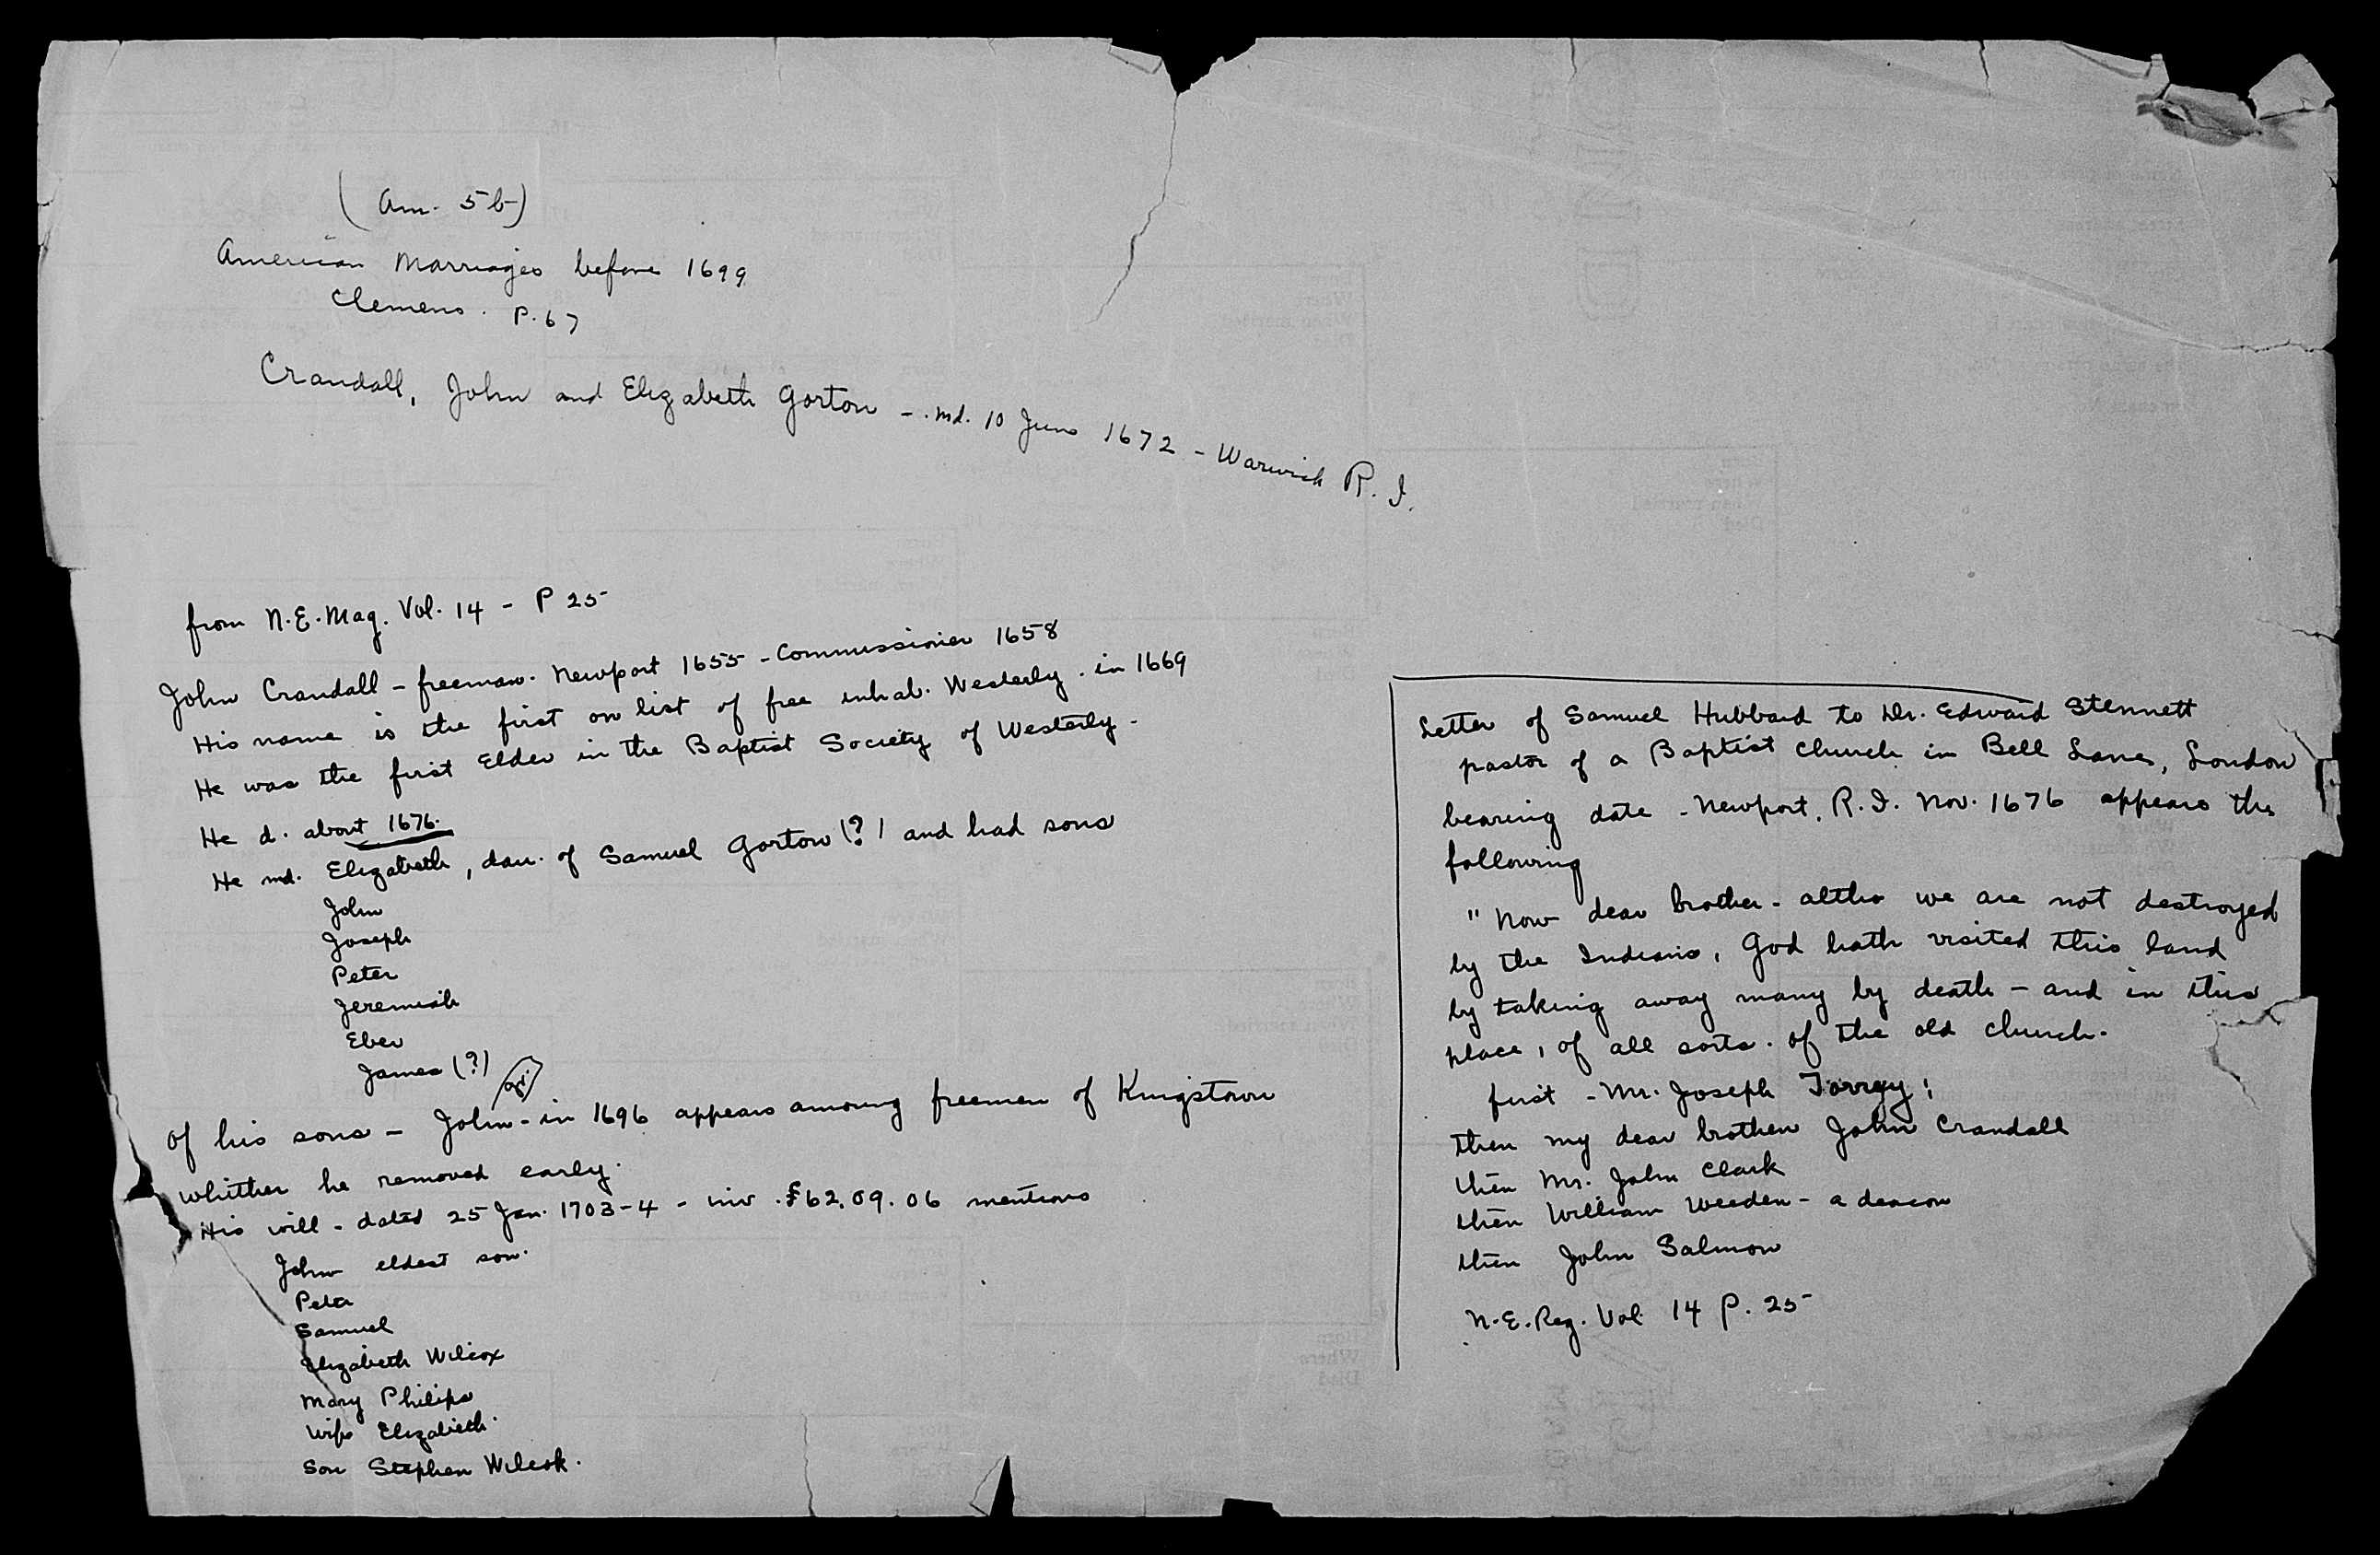 (Am. 5b)
American Marriages before 1699
Clemens. P. 67
Crandall, John and Elizabeth Gorton - md. 10 June 1672 - Warwick R. I.
from N.E. Mag. Vol. 14 - P 25
John Crandall - freeman. Newport 1655 - Commissioner 1658
His name is the first on list of free inhab. Westerly. in 1669
He was the first Elder in the Baptist Society of Westerly -
He d. about 1676.
He md. Elizabeth, dau. of Samuel Gorton (?) and had sons
John
Joseph
Peter
Jeremiah
Eber
James (?)
Of his sons - John - in 1696 appears among freemen of Kingstown
whither he removed early.
His will - dated 25 Jan. 1703-4 - inv. £62.09.06 mentions
John eldest son.
Peter
Samuel
Elizabeth Wilcox
Mary Philips
Wife Elizabeth.
Son Stephen Wilcok.
Letter of Samuel Hubbard to Dr. Edward Stennett
pastor of a Baptist Church in Bell Lane, London
bearing date - Newport, R.I. Nov. 1676 appears the
following
" Now dear brother - altho we are not destroyed
by the Indians, God hath visited this land
by taking away many by death - and in this
place, of all sorts. of the old church.
first - Mr. Joseph Torrey;
then my dear brother John Crandall
then Mr. John Clark
then William Weeden - a deacon
then John Salmon
N.E. Reg. Vol 14 P. 25